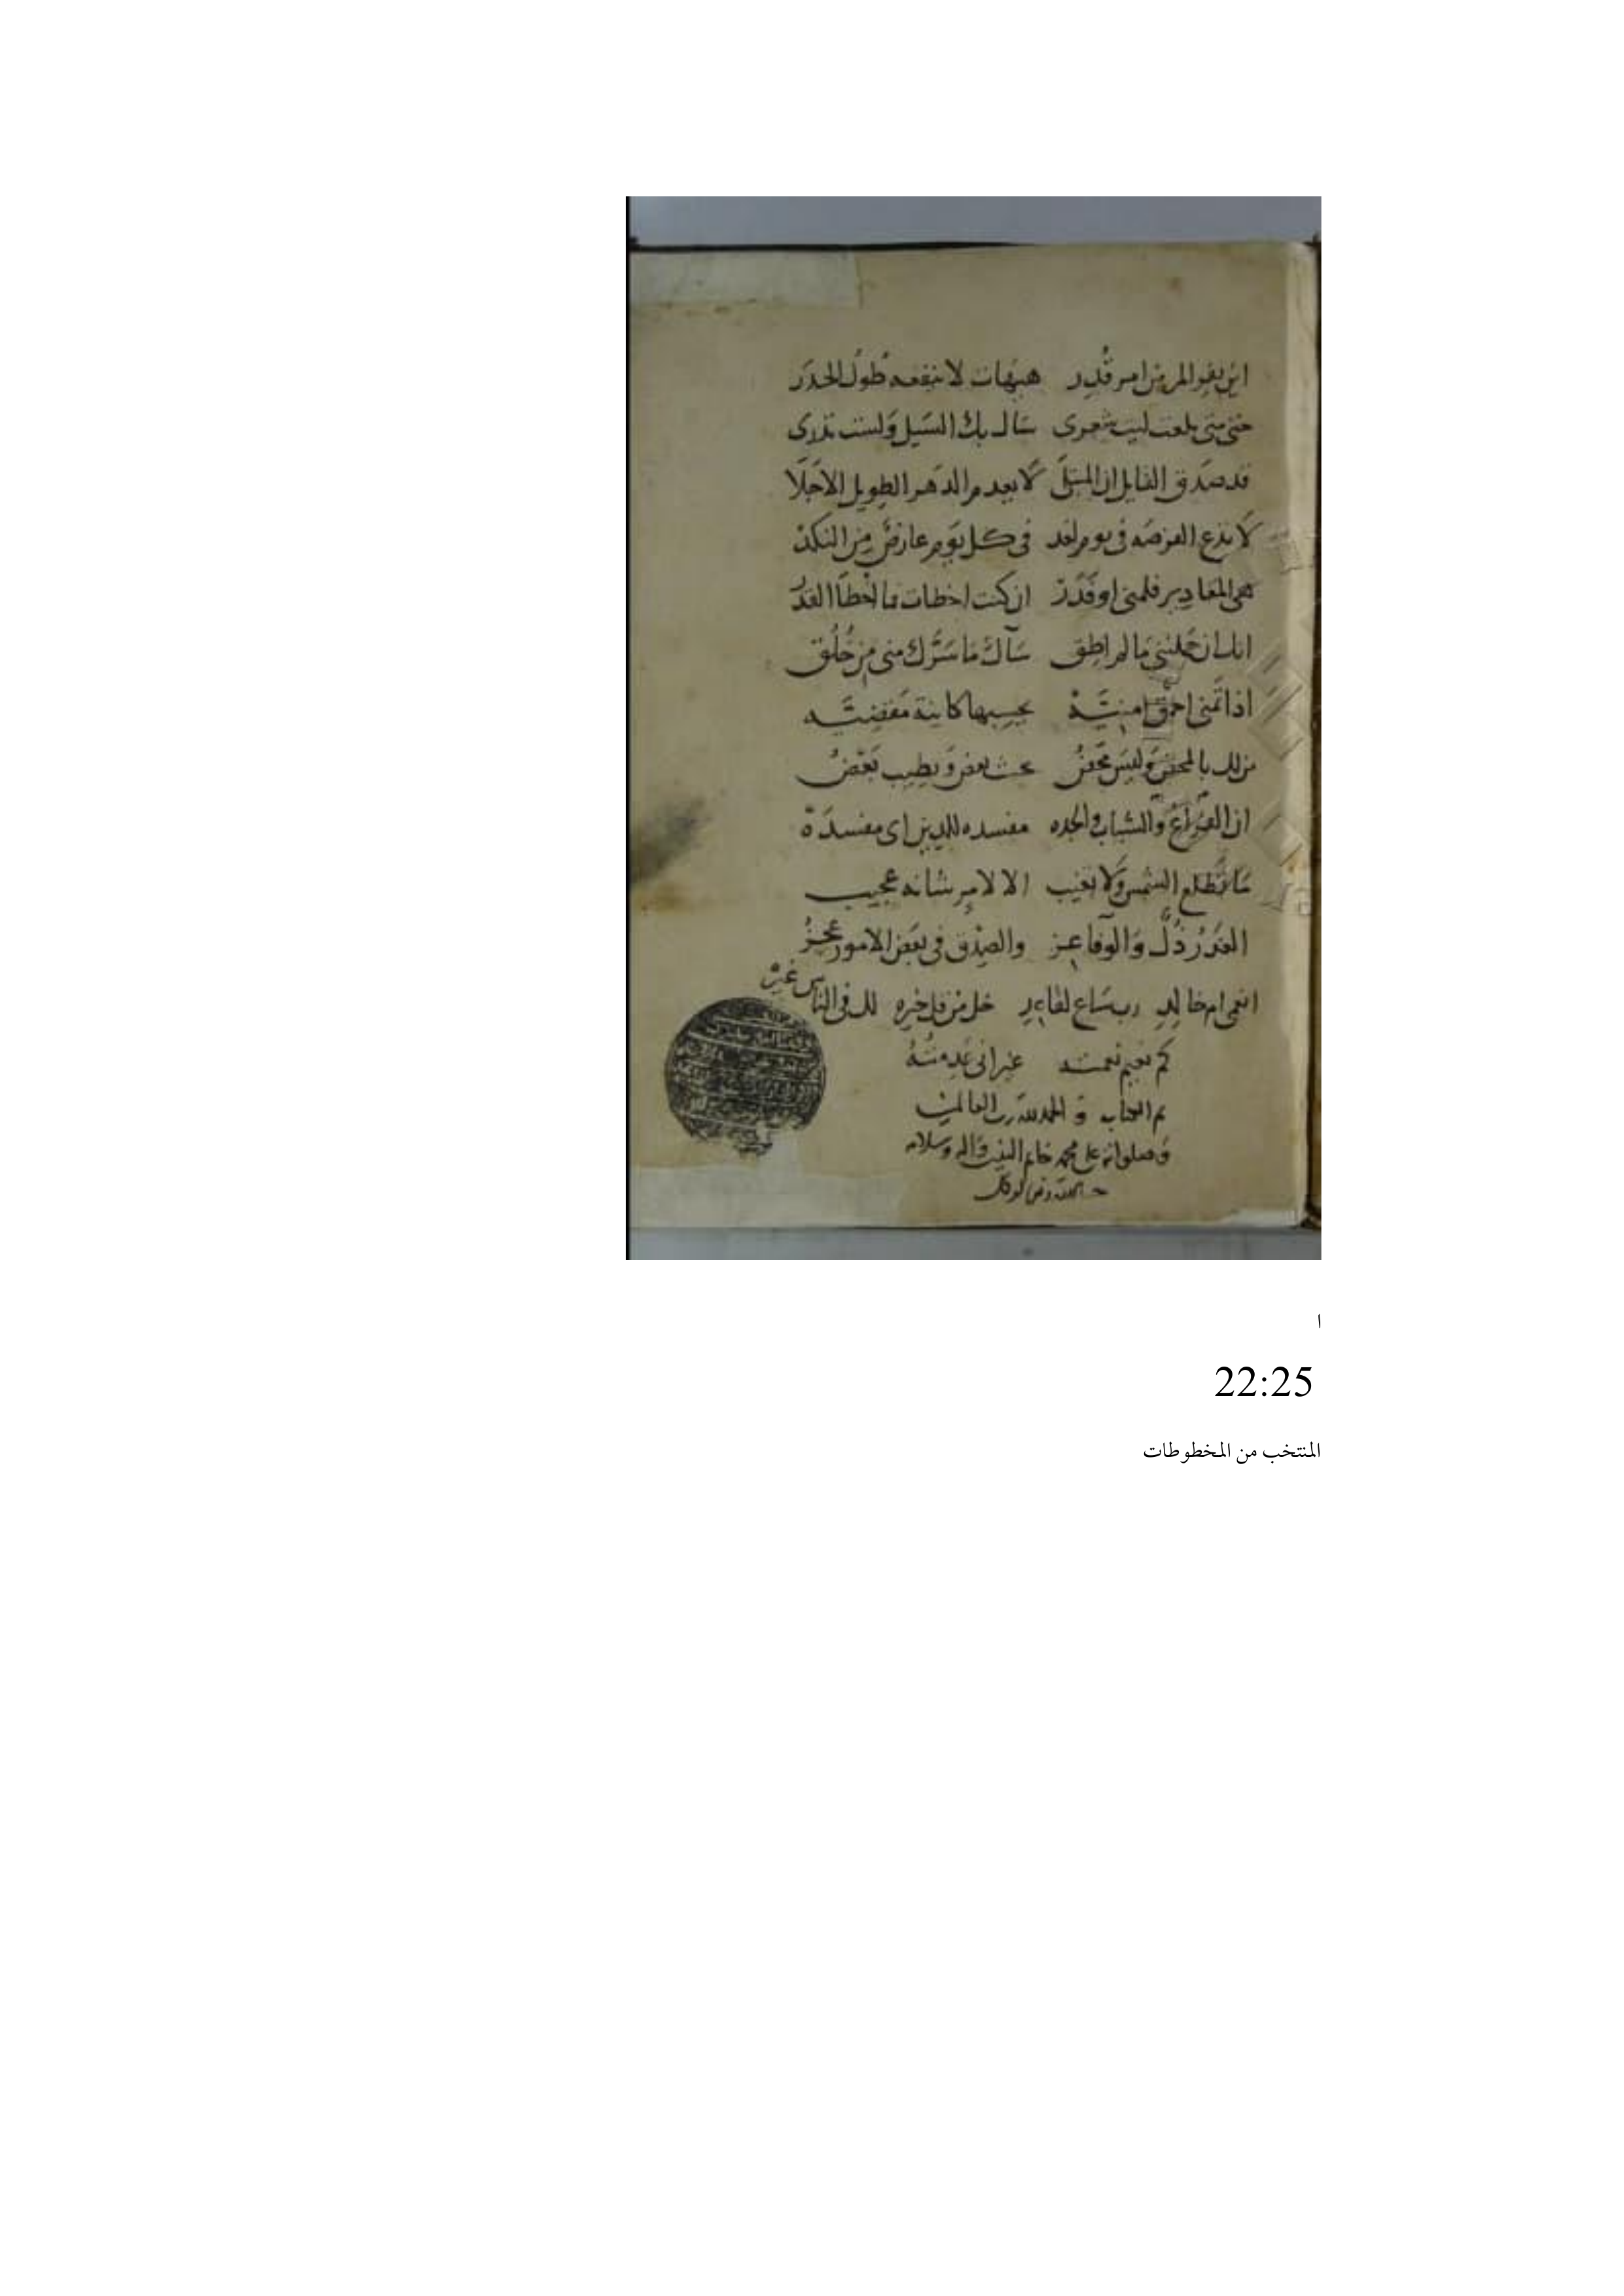 اين يفر المر من امر قُدِر هيهات لا ينفعه طُولُ الحذَر
حتى متى بلغت ليت شعرى سَال بك السَيل وَلست تدرى
قد صَدق القايل ان المثلَ لا يعدم الدَهر الطويل الاجَلا
لَا تدع الفرصَه فى يوم لغد فى كل يَوم عارضٌ مِن النكدْ
هى المقادِير فلمنى او فَذَرْ ان كنت اخطات فما اخْطَأ القدَرْ
انك ان حَملتنى مَا لم اطِق سَآك مَا سَرَّك منى مِن خُلُق
اذا تَمنى احمَق امنيَّهْ يحسِبها كاينة مَقضيَّه
من لك بالمحض وَليسَ مَحَضُ يخبث بعض وَيطِيب بَعْضُ
ان الفَراغَ وَالشباب والجده مفسده للدين اى مفسدَهْ
مَا تَطلع الشمس وَلَا تغيب الا لامر شانه عجيب
الغَدْرُ ذُلٌّ وَالوَفا عِز والصِدْق فى بعَض الامور عجزُ
انعمى ام خالِدِ رب سَاع لقاعِدِ خل من قل خيره لك فى الناس غيرُه
كم نعيم نعمته غير انى عَدِمتُهُ
تم الكتاب وَالحمد لله رب العالمين
وَصلواته على محمد خاتم النبيين وَاله وسلامه
حسبنا الله ونعم الوكيل
ا
22:25
المنتخب من المخطوطات